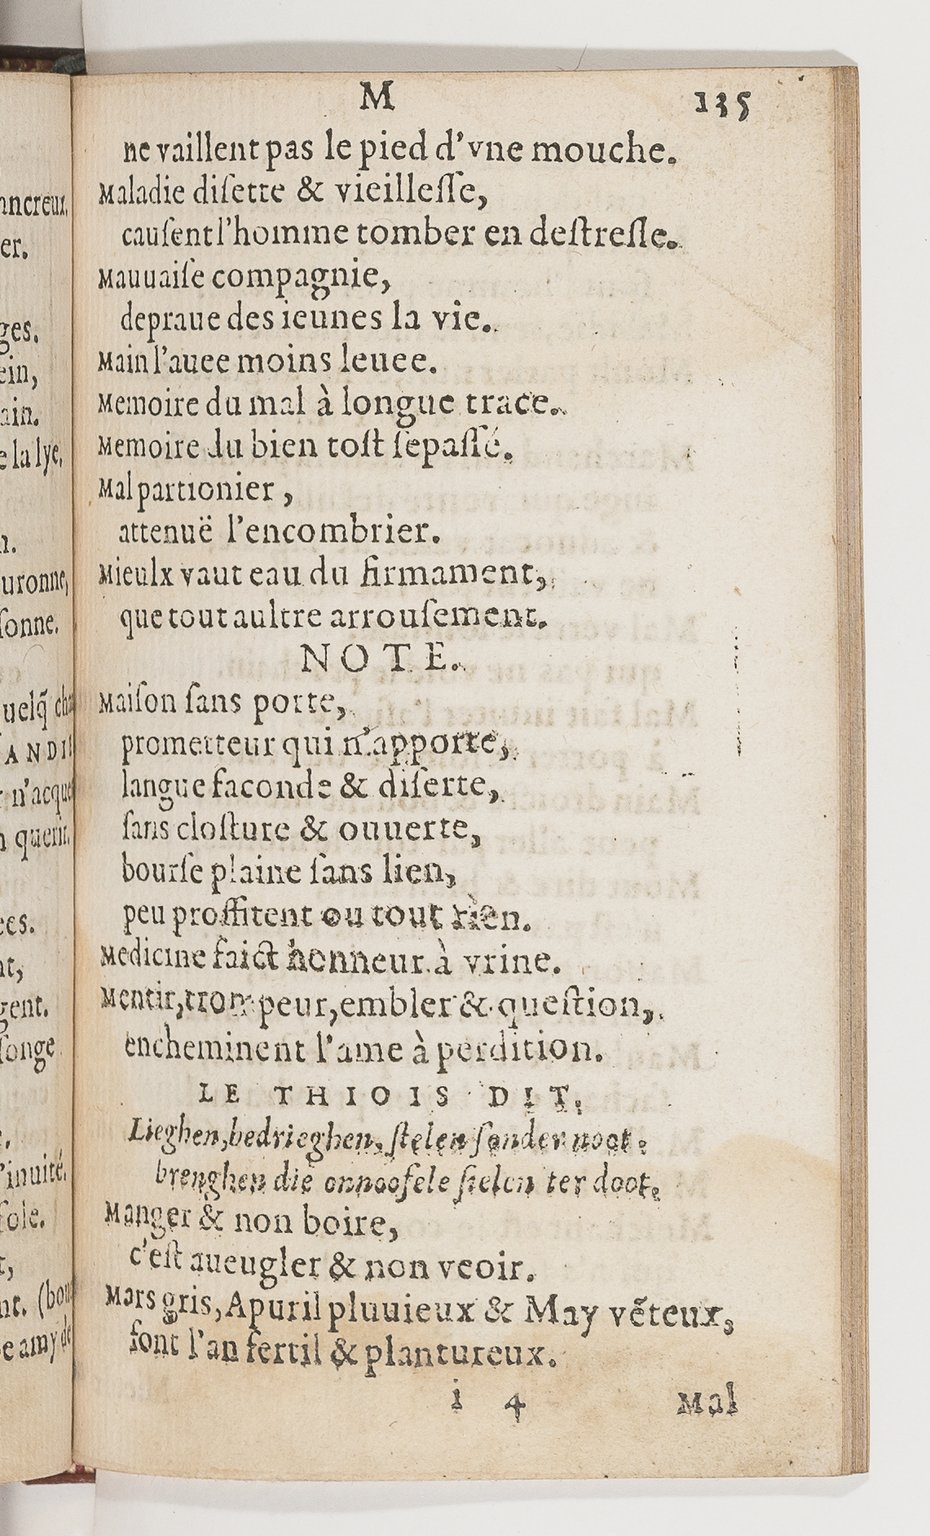 M 135
ne vaillent pas le pied d'vne mouche.
Maladie diſette & vieilleſſe,
cauſent l'homme tomber en deſtreſſe.
Mauuaiſe compagnie,
depraue des ieunes la vie.
Main l'auee moins leuee.
Memoire du mal à longue trace.
Memoire du bien toſt ſepaſſé.
Mal partionier,
attenuë l'encombrier.
Mieulx vaut eau du firmament,
que tout aultre arrouſement.
NOTE.
Maiſon ſans porte,
prometteur qui n'apporte,
langue faconde & diſerte,
ſans cloſture & ouuerte,
bourſe plaine ſans lien,
peu proffitent ou tout rien.
Medicine faict honneur à vrine.
Mentir, trompeur, embler & queſtion,
encheminent l'ame à perdition.
LE THIOIS DIT.
Lieghen, bedrieghen, ſtelen ſonder noot:
brenghen die onnooſele ſielen ter doot.
Manger & non boire,
c'eſt aueugler & non veoir.
Mars gris, Apuril pluuieux & May vẽteux,
font l'an fertil & plantureux.
i 4 Mal
ancreux,
er.
ges.
ein,
ain.
e la lye,
n.
uronne,
ſonne.
uelq̃
ANDI
n'acque
querir.
ees.
nt,
gent.
ſonge
l'inuité.
ſole.
nt. (bon
e amy de